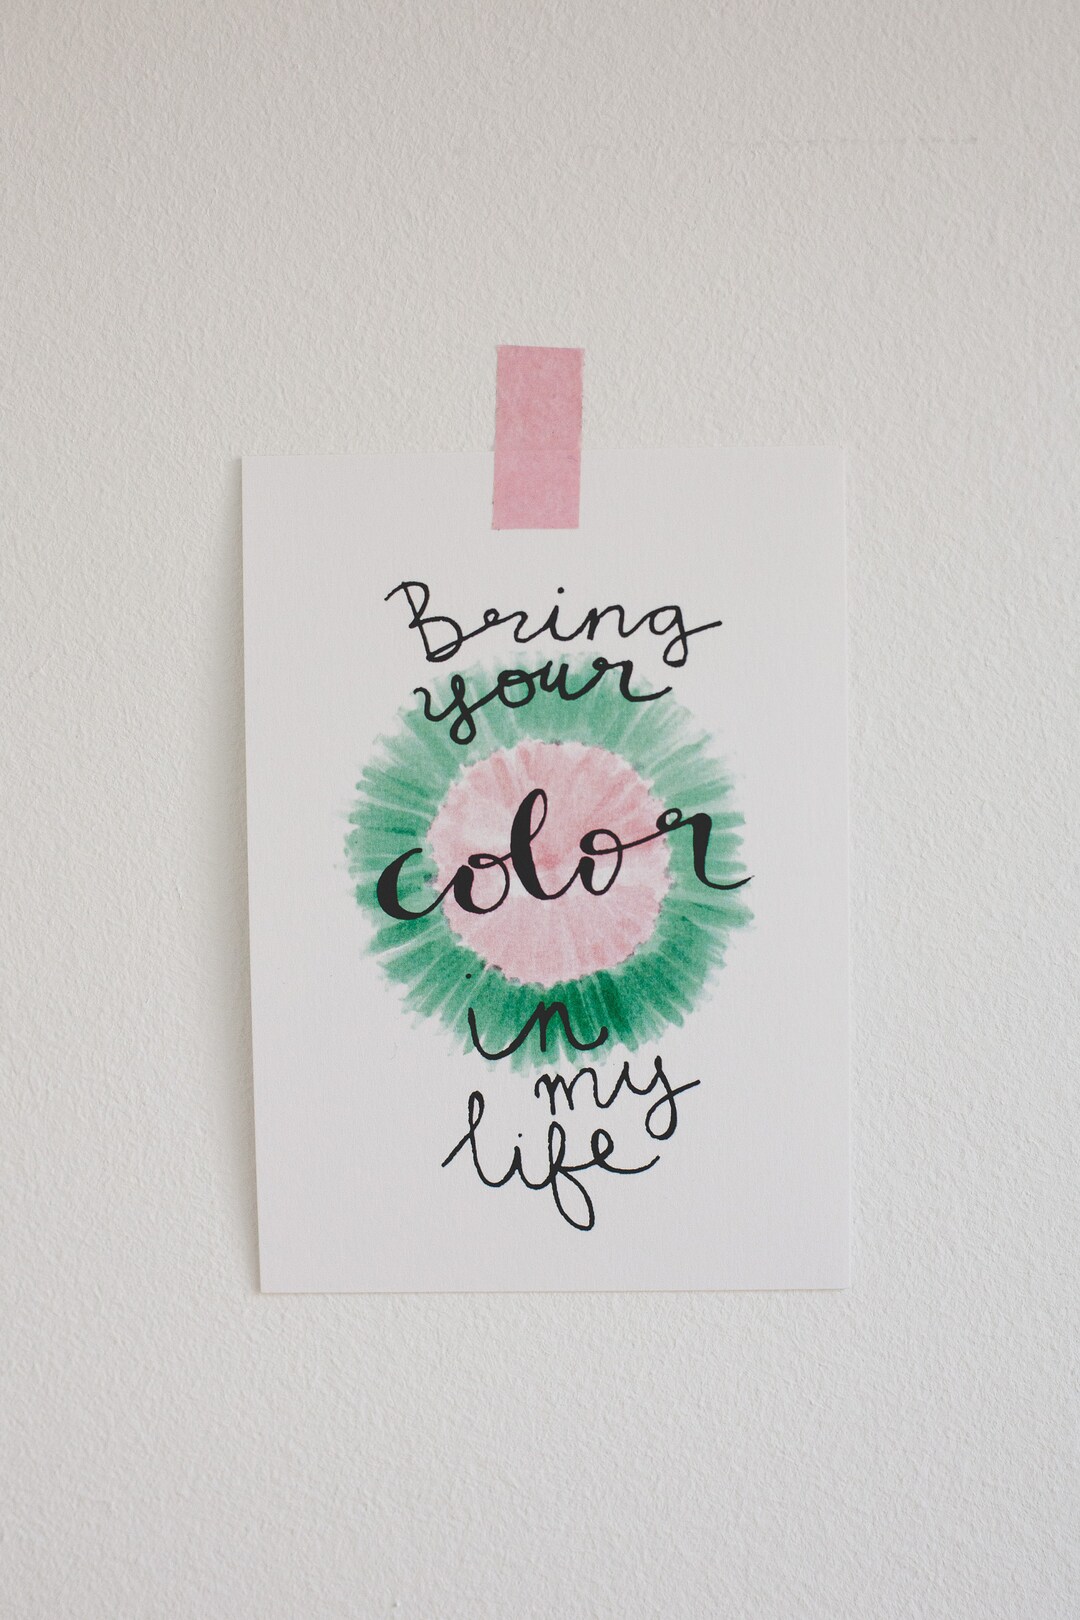 Bring
your
color
in
my
life